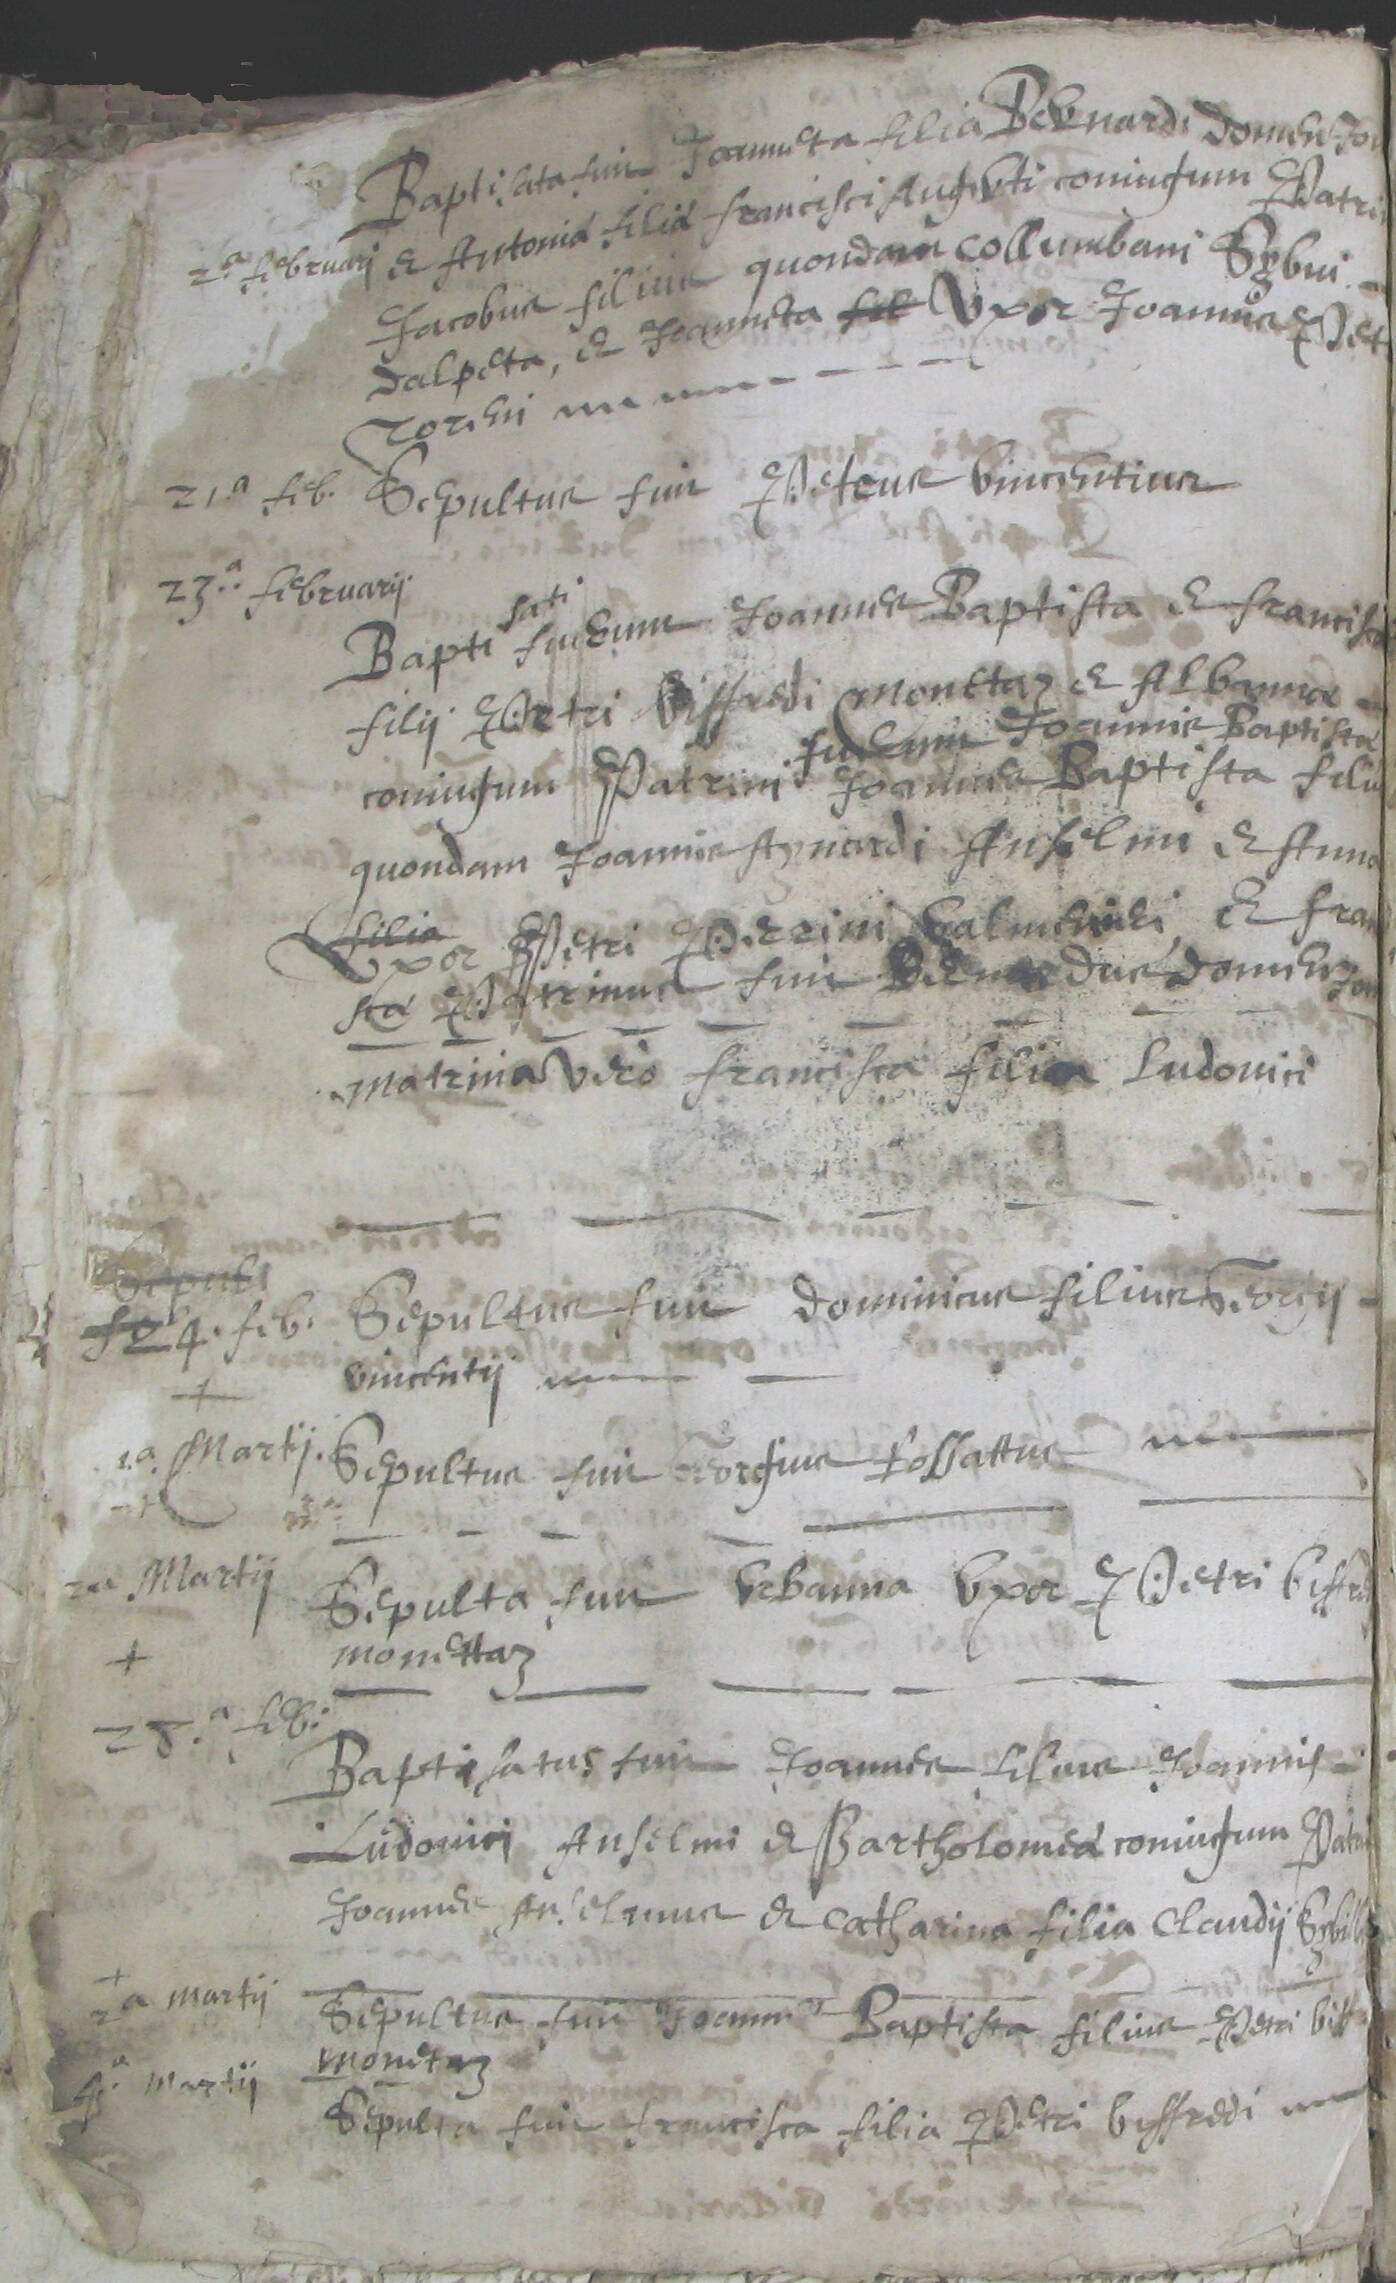 Baptisata fuit Joanneta filia Bernardi Domenzon
2.a februarij & Antonia filia francisci Augusti coniugum Patri
Jacobus filius quondam Collumbani Sybui
dalpeta, & Joanneta fil Uxor Joannis Pet
Torchi
21.a feb. Sepultus fuit Petrus Vincentius
23.a februarij
Baptisati fuerunt Joannes Baptista & francisca
filij Petri Biffredi Monetaz & Albanna
coniugum Patrini fuerunt Joannis Baptista Joannes Baptista filiu
quondam Joannis Aynardi Anselmi & Anna
filia Uxor Petri Perrini & fran
sca Patrinus fuit Bernardus Domenzon
Matrina Vero francisca filia Ludovici
Sepul
24. feb. Sepultus fuit Dominicus filius Georgij
Vincentij
1.a Martij. Sepultus fuit Georgius Rossattus
2a Martij Sepulta fuit Urbanna Uxor Petri biffred
monettaz
28.a feb:
Baptisatus fuit Joannes filius Joannis
Ludovici Anselmi & Bartholomea coniugum Patri
Joannes Anselmus & Catharina filia Claudij Sybill
2a martij Sepultus fuit Joannes Baptista filius Petri biff
Monetaz
Martij Sepulta fuit francisca filia Petri biffredi